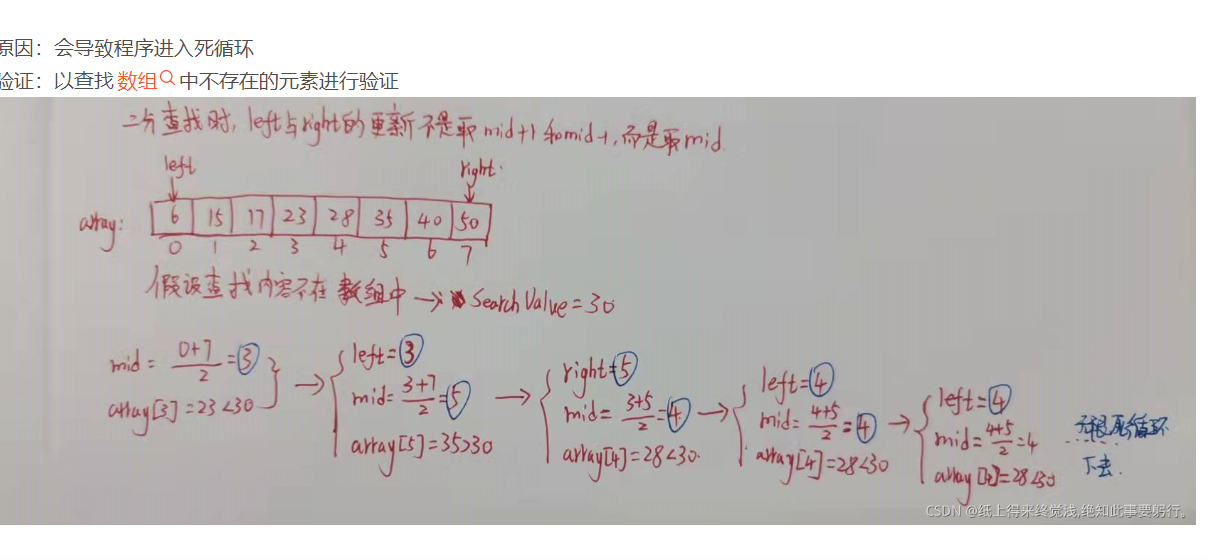 原因：会导致程序进入死循环
验证：以查找 数组 中不存在的元素进行验证
二分查找时，left与right的更新不是取mid+1和mid-1，而是取mid.
left right.
array: 6 15 17 23 28 35 40 50
0 1 2 3 4 5 6 7
假设查找内容不在数组中→ Search Value=30
mid = 0+7/2 = 3
array[3]=23<30
→ left=3
mid= 3+7/2 = 5
array[5]=35>30
→ right=5
mid= 3+5/2 = 4
array[4]=28<30.
→ left=4
mid= 4+5/2 = 4
array[4]=28<30
→ left=4
mid= 4+5/2 =4
array[4]=28<30
无限死循环
下去.
CSDN @纸上得来终觉浅,绝知此事要躬行。